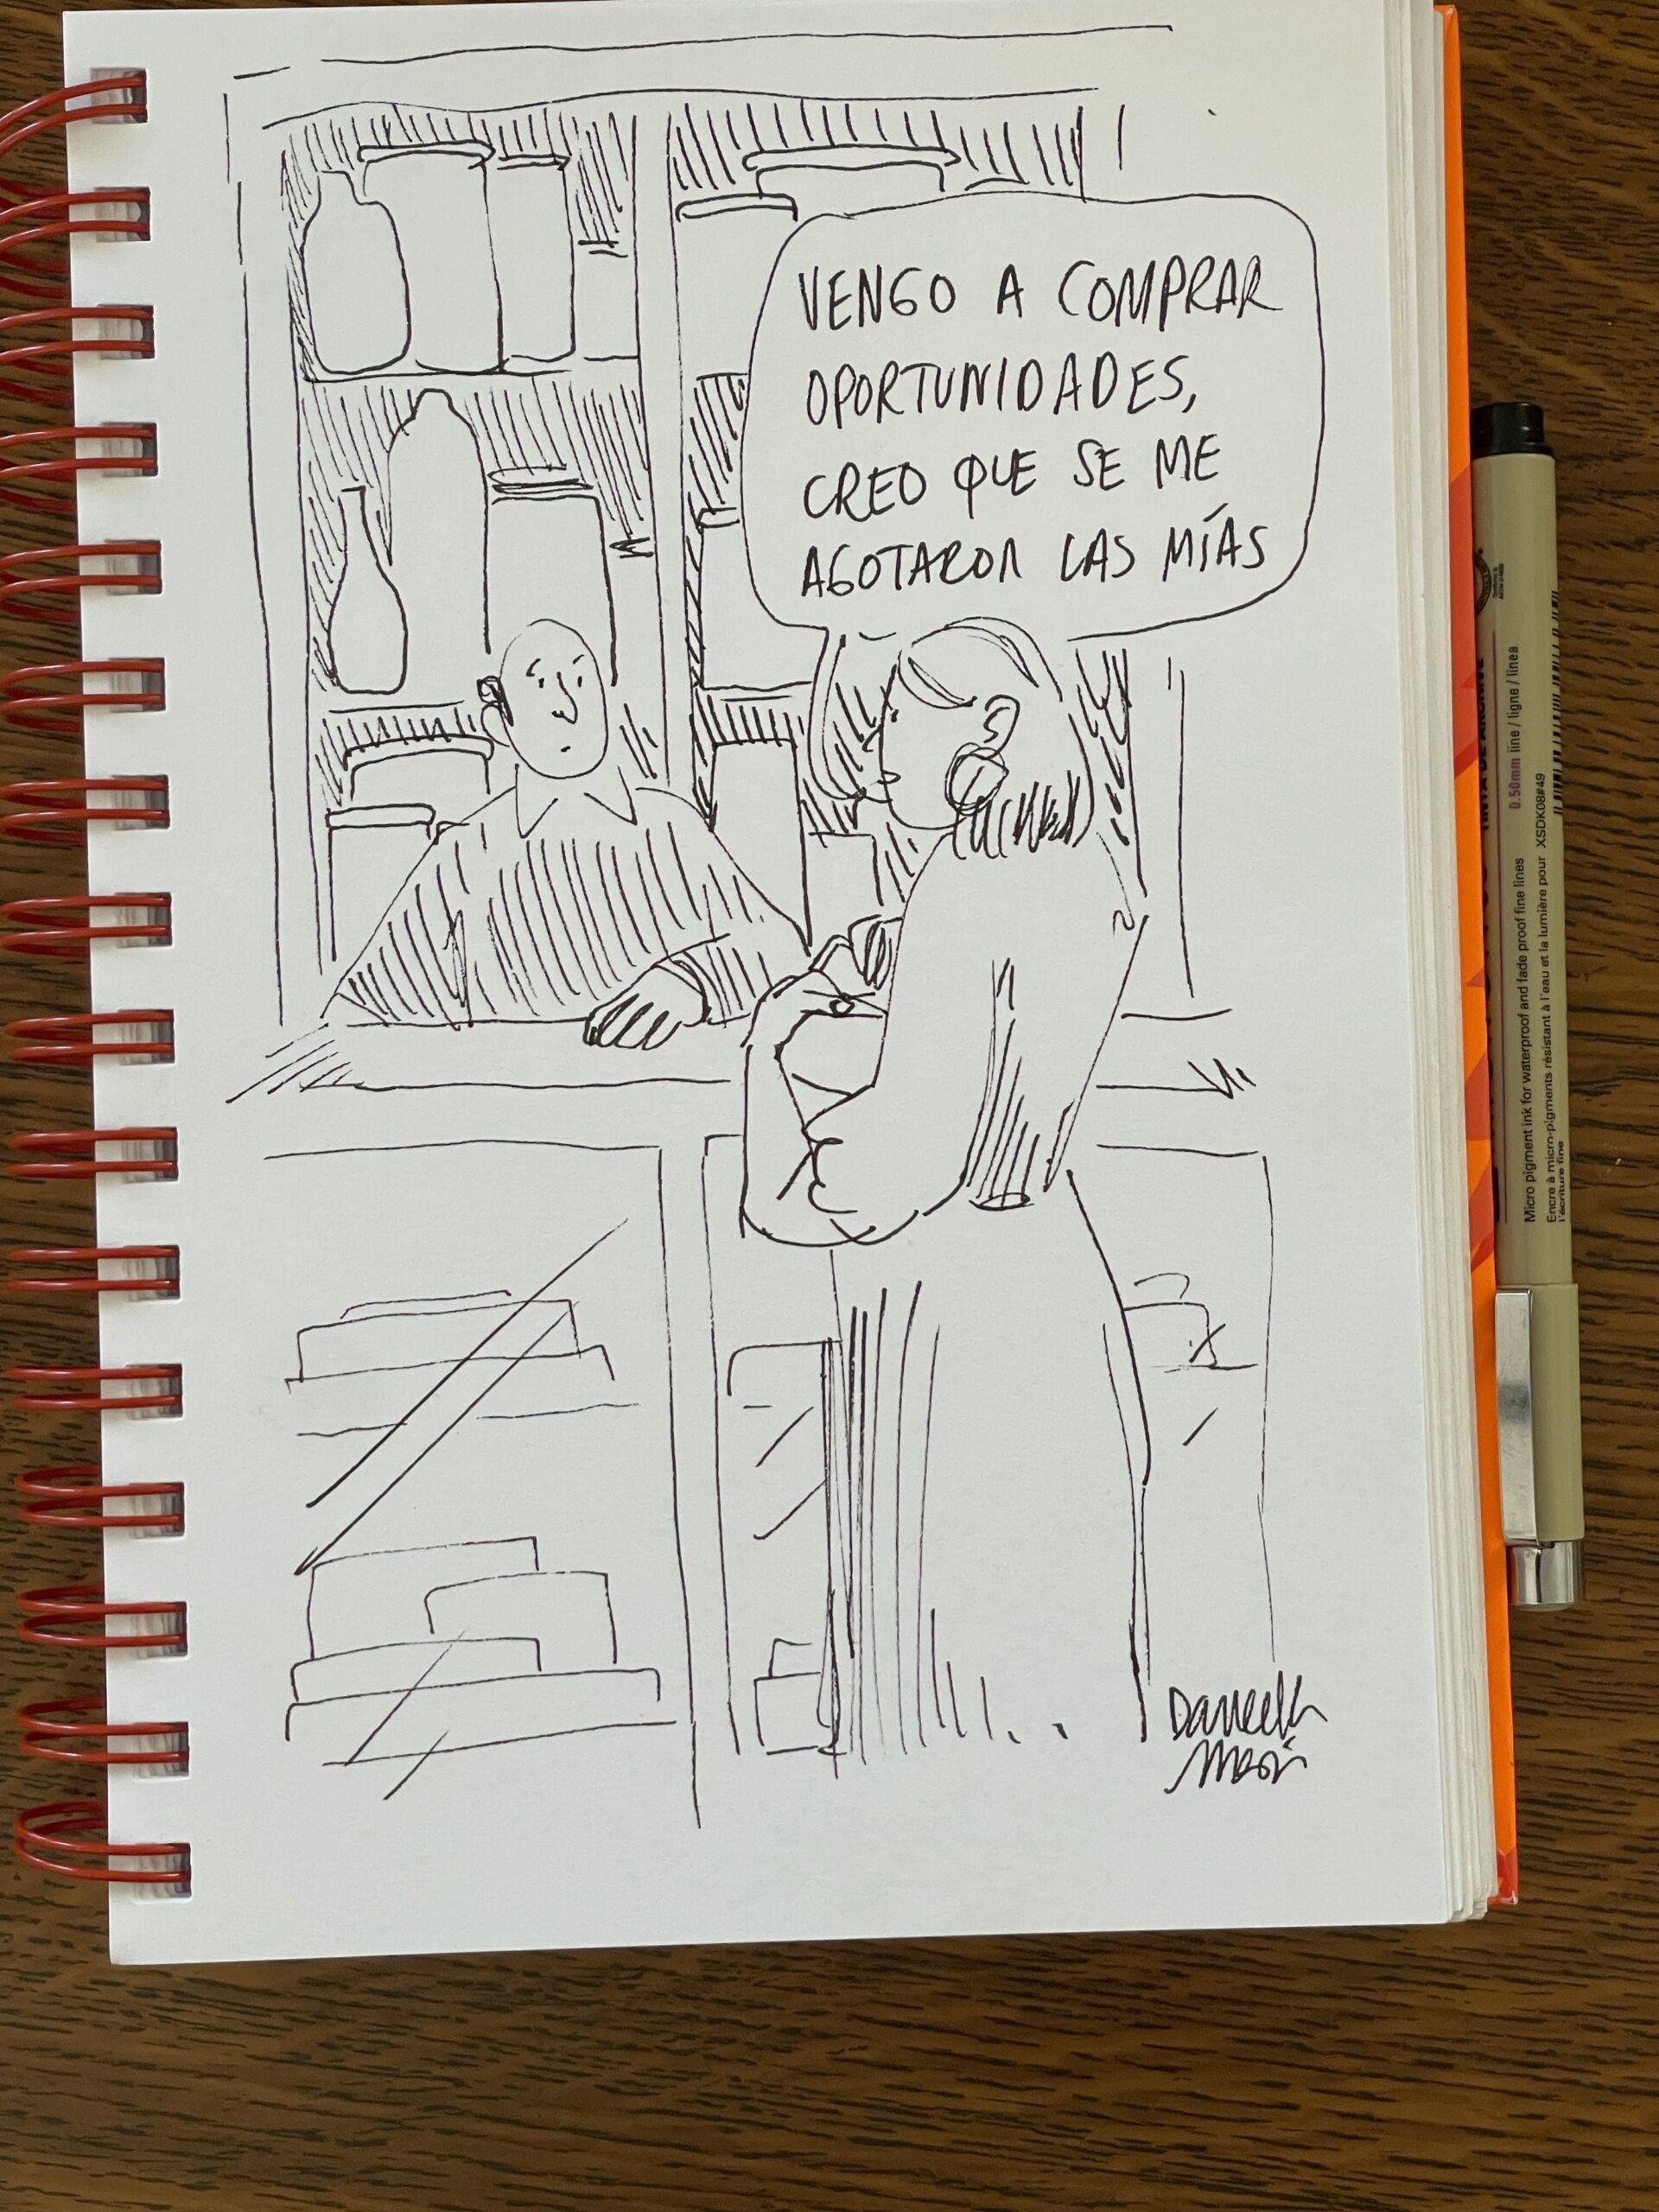 VENGO A COMPRAR
OPORTUNIDADES,
CREO QUE SE ME
AGOTARON LAS MÍAS
0.50mm line / ligne / línea
Micro pigment ink for waterproof and fade proof fine lines
XSDK08#49
Encre à micro-pigments résistant à l'eau et la lumière pour
l'écriture fine